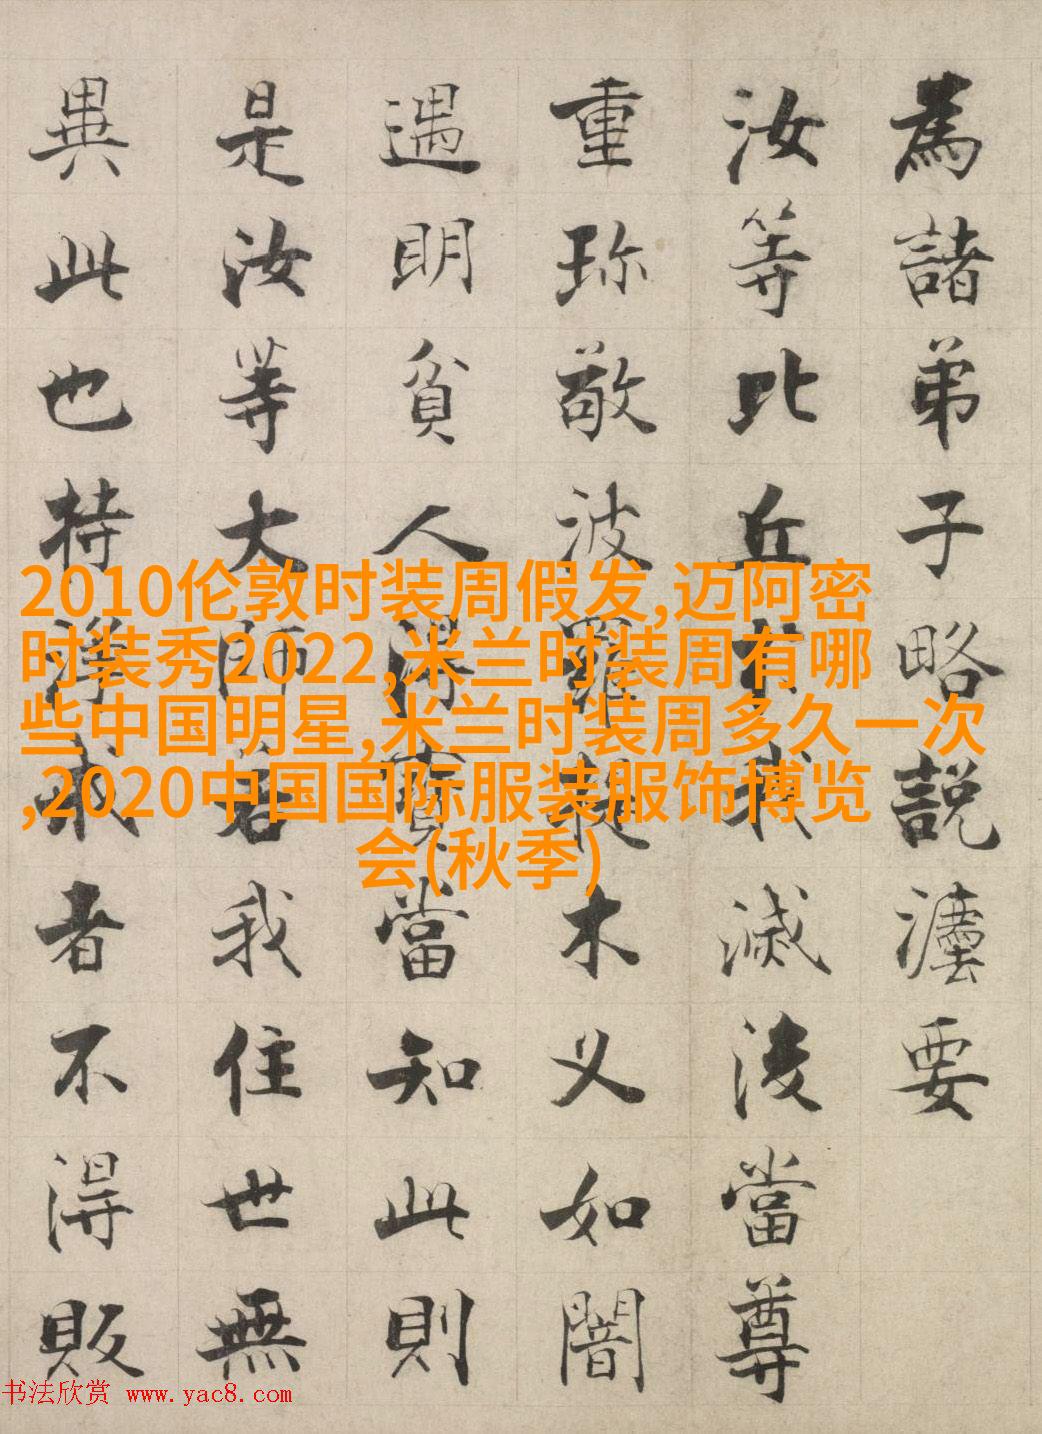 為諸弟子略説灋要
汝等比丘於我滅後當尊
重珎敬波羅提木叉如闇
遇明貧人得寶當知此則
是汝等大師若我住世無
異此也持淨戒者不得販
2010伦敦时装周假发,迈阿密
时装秀2022,米兰时装周有哪
些中国明星,米兰时装周多久一次
,2020中国国际服装服饰博览
会(秋季)
书法欣赏 www.yac8.com